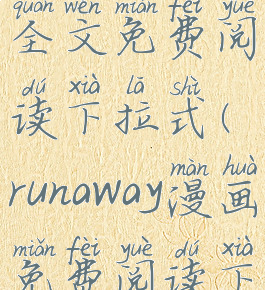 quán wén miǎn fèi yuè
全文免费阅
dú xià lā shì
读下拉式(
màn huà
runaway漫画
miǎn fèi yuè dú xià
免费阅读下